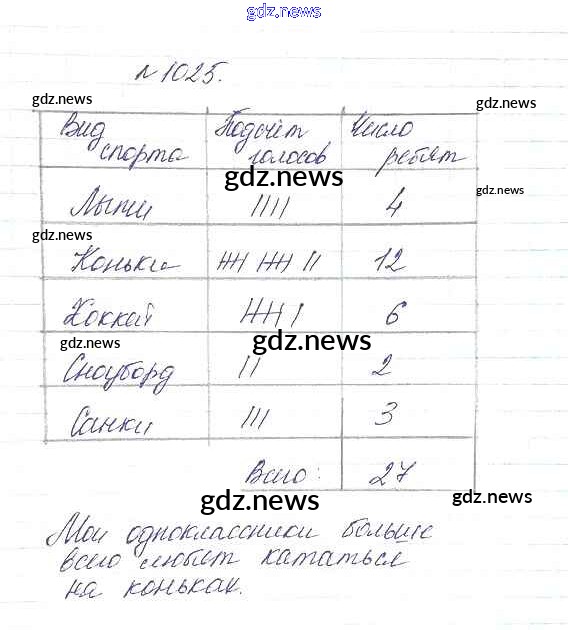 gdz.news
№1025.
gdz.news
gdz.news
Вид спорта Подсчёт голосов Число ребят
gdz.news
gdz.news
Лыжи |||| 4
gdz.news
Коньки 𝍸 𝍸 || 12
Хоккей 𝍸 | 6
gdz.news
gdz.news
Сноуборд || 2
Санки ||| 3
Всего: 27
gdz.news
gdz.news
Мои одноклассники больше
всего любят кататься
на коньках.